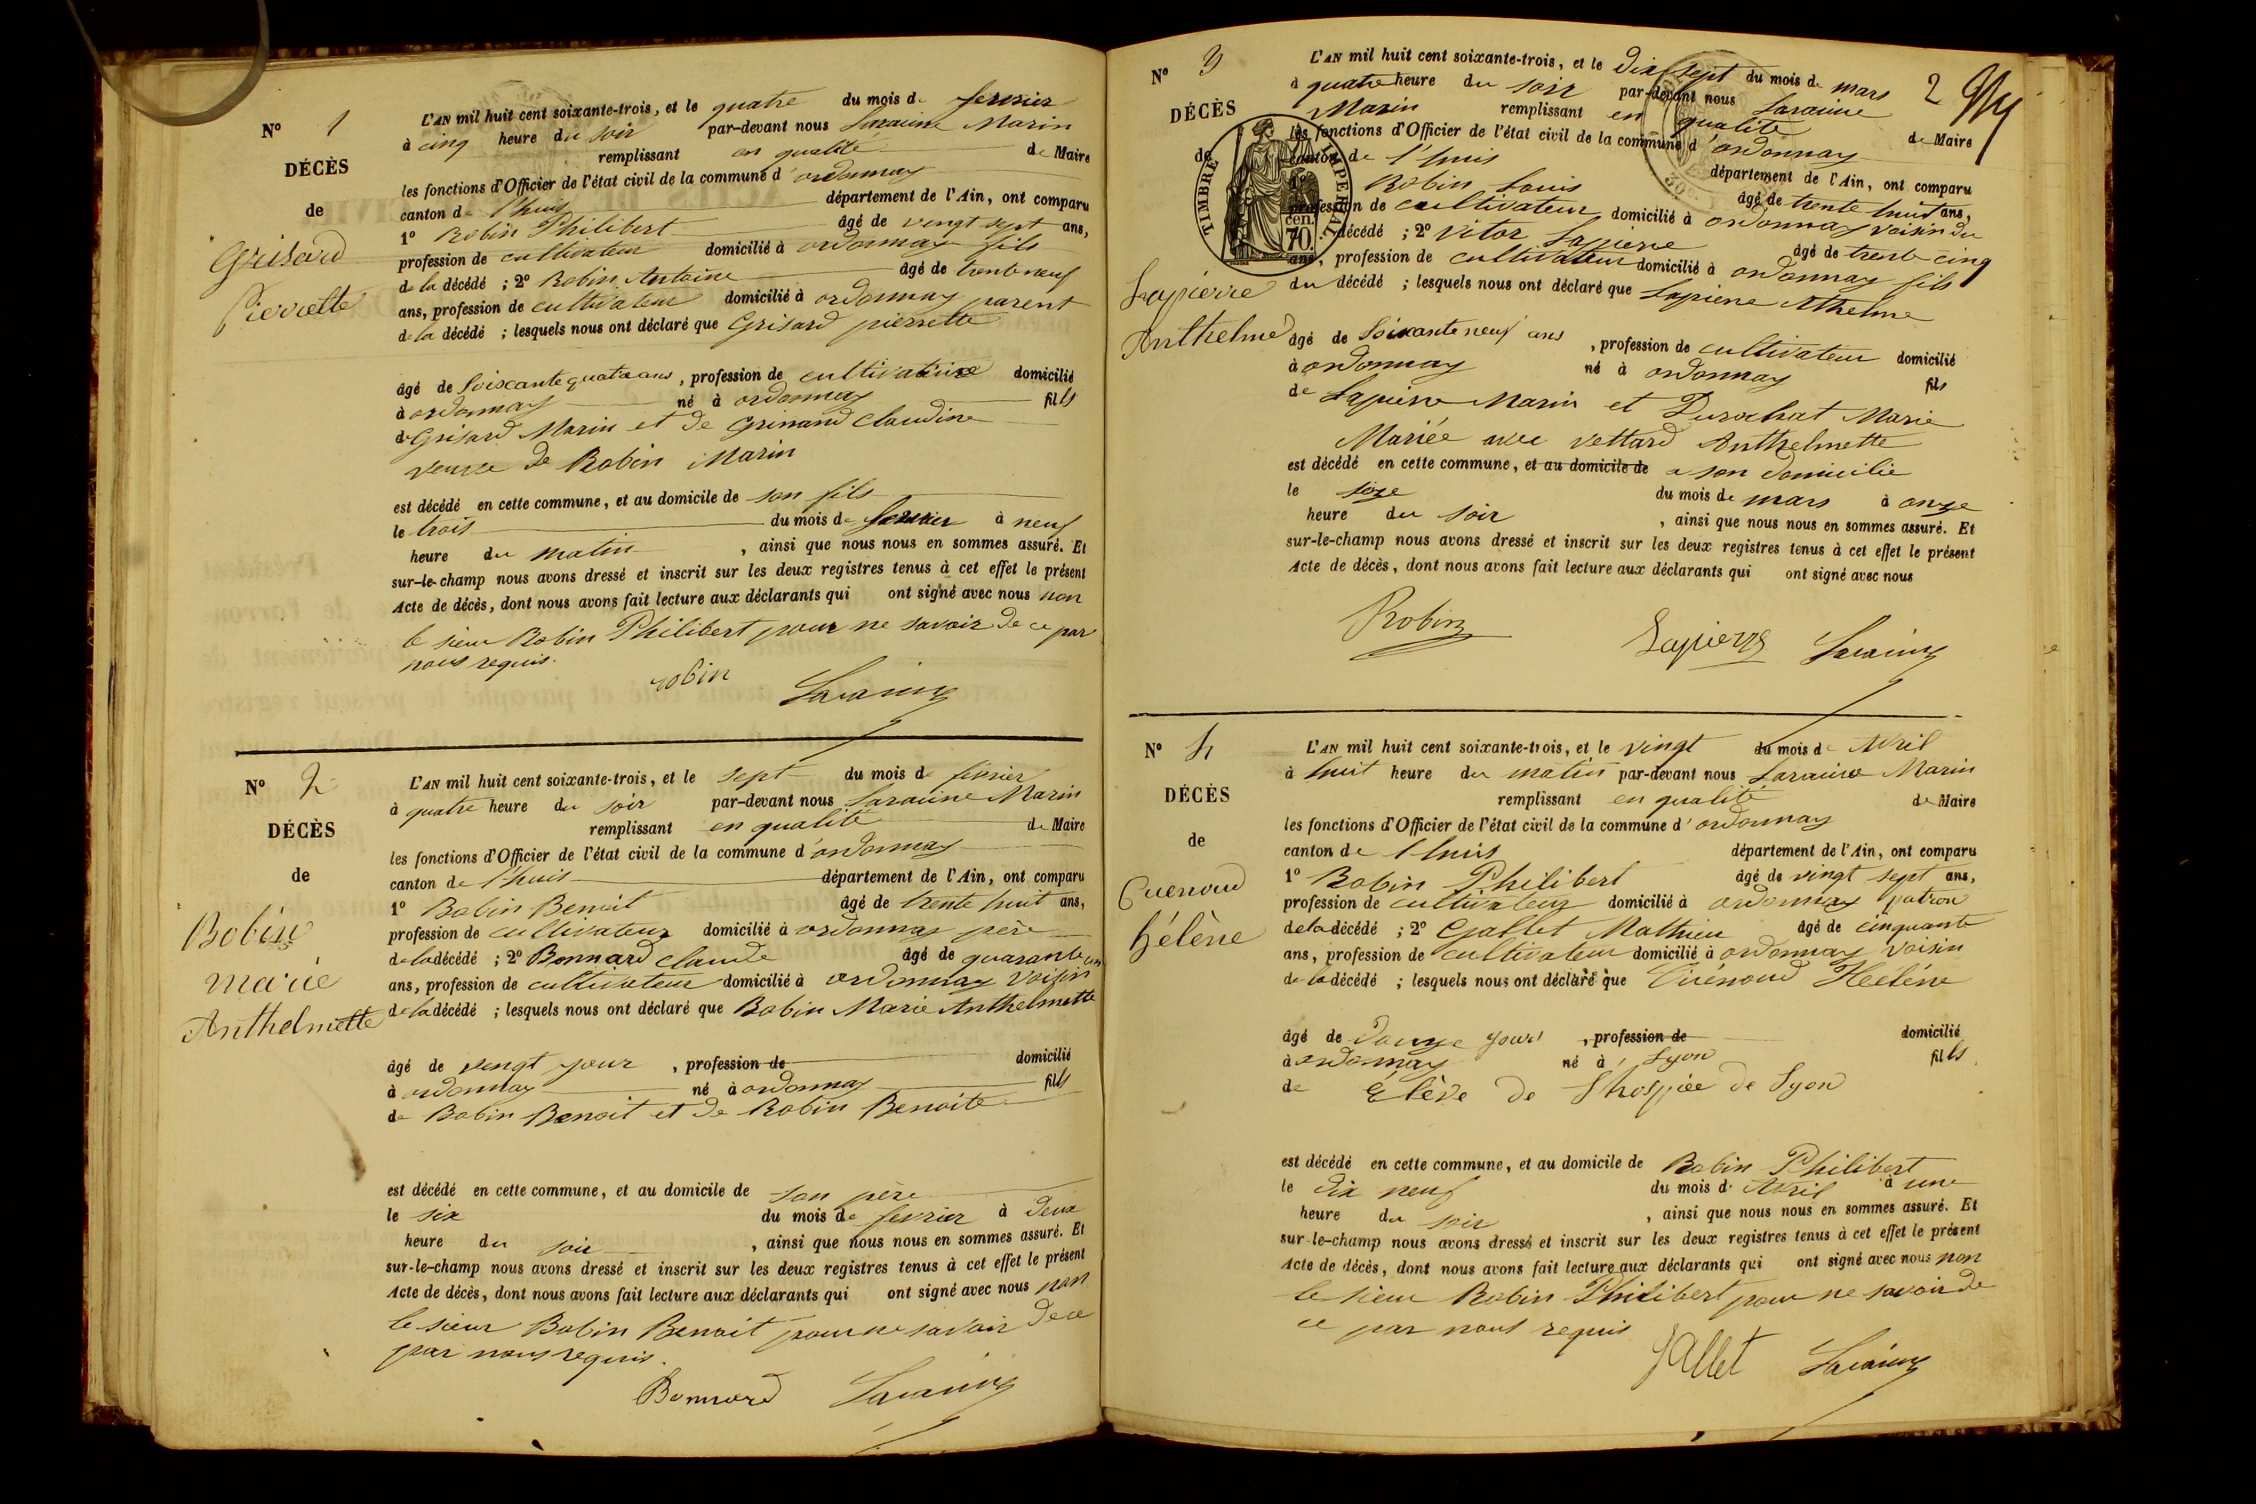 N° 1
DÉCÈS
de
Grisard
Pierrette
L'AN mil huit cent soixante-trois, et le quatre du mois de fevrier
à cinq heure du soir par-devant nous Laraime Marin
remplissant en qualité de Maire
les fonctions d'Officier de l'état civil de la commune d'ordonnay
canton de l'huis département de l'Ain, ont comparu
1° Robin Philibert âgé de vingt sept ans,
profession de cultivateur domicilié à ordonnay fils
de la décédé ; 2° Robin Antoine âgé de trente neuf
ans, profession de cultivateur domicilié à ordonnay parent
de la décédé ; lesquels nous ont déclaré que Grisard pierrette
âgé de Soixante quatre ans, profession de cultivatrice domicilié
à ordonnay né à ordonnay fils
de Grisard Marin et de Grinand Claudine
veuve de Robin Marin
est décédé en cette commune, et au domicile de son fils
le trois du mois de fevrier à neuf
heure du matin, ainsi que nous nous en sommes assuré. Et
sur-le-champ nous avons dressé et inscrit sur les deux registres tenus à cet effet le présent
Acte de décès, dont nous avons fait lecture aux déclarants qui ont signé avec nous non
le sieur Robin Philibert pour ne savoir de ce par
nous requis.
robin Laraime
N° 2
DÉCÈS
de
Robin
marie
Anthelmette
L'AN mil huit cent soixante-trois, et le sept du mois de fevrier
à quatre heure du soir par-devant nous Laraime Marin
remplissant en qualité de Maire
les fonctions d'Officier de l'état civil de la commune d'ordonnay
canton de l'huis département de l'Ain, ont comparu
1° Robin Benoit âgé de trente huit ans,
profession de cultivateur domicilié à ordonnay père
de la décédé ; 2° Bonnard claude âgé de quarante un
ans, profession de cultivateur domicilié à ordonnay Voisin
de la décédé ; lesquels nous ont déclaré que Robin Marie Anthelmette
âgé de vengt jour, profession de domicilié
à ordonnay né à ordonnay fils
de Robin Benoit et de Robin Benoite
est décédé en cette commune, et au domicile de son père
le six du mois de fevrier à deux
heure du soir, ainsi que nous nous en sommes assuré. Et
sur-le-champ nous avons dressé et inscrit sur les deux registres tenus à cet effet le présent
Acte de décès, dont nous avons fait lecture aux déclarants qui ont signé avec nous non
le sieur Robin Benoit pour ne savoir de ce
par nous requis.
Bonnard Laraime
2
N° 3
DÉCÈS
de
TIMBRE IMPERIAL
cen.
70.
Lapierre
Anthelme
L'AN mil huit cent soixante-trois, et le Dix sept du mois de mars
à quatre heure du soir par-devant nous Laraime
Marin remplissant en qualité de Maire
les fonctions d'Officier de l'état civil de la commune d'ordonnay
canton de l'huis département de l'Ain, ont comparu
1° Robin Louis âgé de trente huit ans,
profession de cultivateur domicilié à ordonnay voisin du
décédé ; 2° Vitor Lapierre âgé de trente cinq
ans, profession de cultivateur domicilié à ordonnay fils
du décédé ; lesquels nous ont déclaré que Lapierre Athelme
âgé de Soixante neuf ans, profession de cultivateur domicilié
à ordonnay né à ordonnay fils
de Lapierre Marin et Durochat Marie
Mariée avec vettard Anthelmette
est décédé en cette commune, et au domicile de a son domicilie
le sèze du mois de mars à onze
heure du soir, ainsi que nous nous en sommes assuré. Et
sur-le-champ nous avons dressé et inscrit sur les deux registres tenus à cet effet le présent
Acte de décès, dont nous avons fait lecture aux déclarants qui ont signé avec nous
Robin Lapierre Laraime
N° 4
DÉCÈS
de
Cuenoud
hélène
L'AN mil huit cent soixante-trois, et le vingt du mois de Avril
à huit heure du matin par-devant nous Laraime Marin
remplissant en qualité de Maire
les fonctions d'Officier de l'état civil de la commune d'ordonnay
canton de l'huis département de l'Ain, ont comparu
1° Robin Philibert âgé de vingt sept ans,
profession de cultivateur domicilié à ordonnay patron
de la décédé ; 2° Gallet Mathieu âgé de cinquante
ans, profession de cultivateur domicilié à ordonnay Voisin
de la décédé ; lesquels nous ont déclaré que Cuénoud Heelène
âgé de Douze jours, profession de domicilié
à ordonnay né à Lyon fils
de Élève de l'hospice de Lyon
est décédé en cette commune, et au domicile de Robin Philibert
le dix neuf du mois d'Avril à une
heure du soir, ainsi que nous nous en sommes assuré. Et
sur-le-champ nous avons dressé et inscrit sur les deux registres tenus à cet effet le présent
Acte de décès, dont nous avons fait lecture aux déclarants qui ont signé avec nous non
le sieur Robin Philibert pour ne savoir de
ce par nous requis
Gallet Laraime